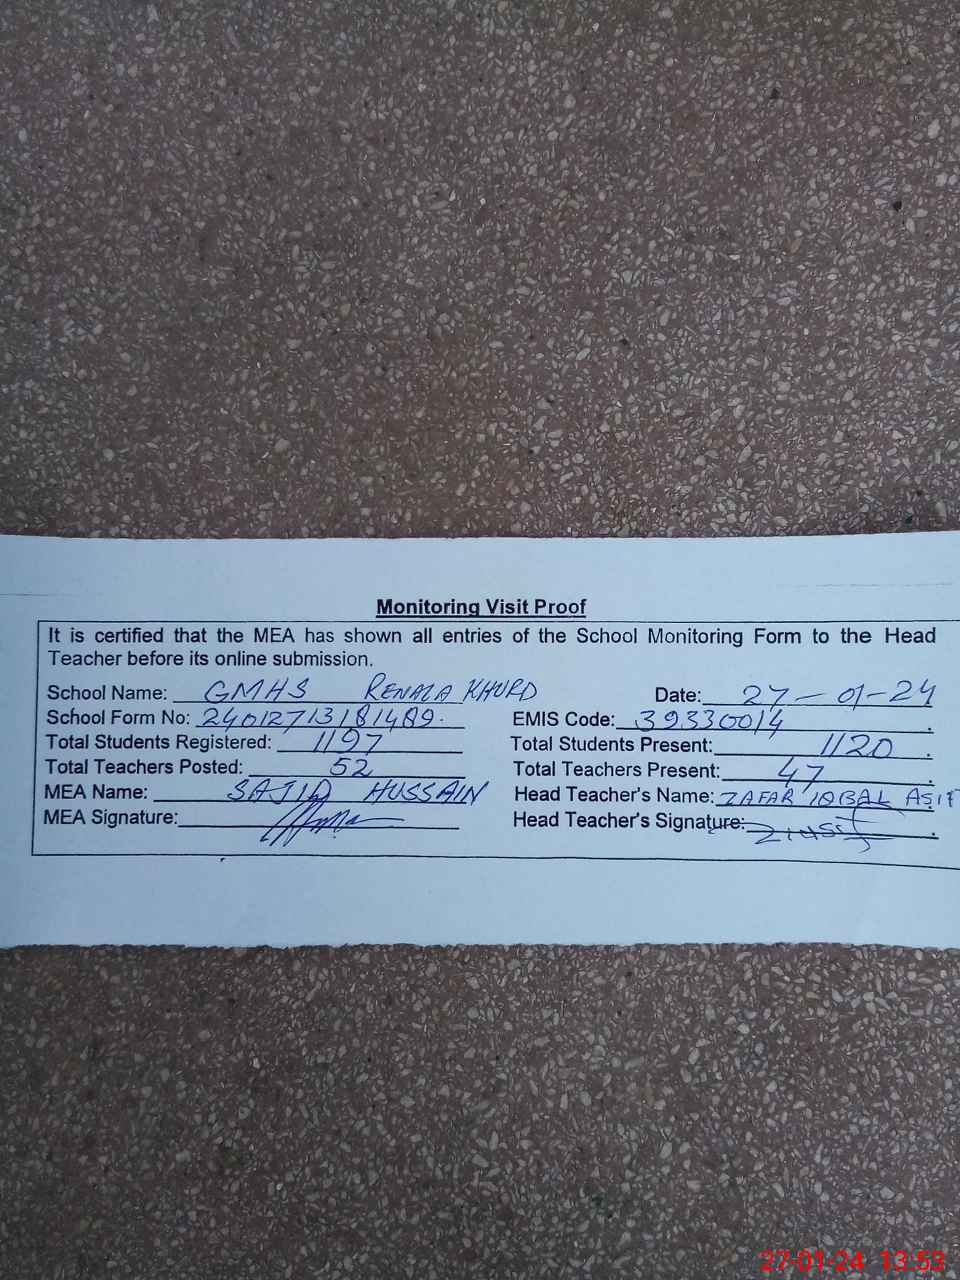 Monitoring Visit Proof
It is certified that the MEA has shown all entries of the School Monitoring Form to the Head
Teacher before its online submission.
School Name: GMHS RENALA KHURD Date: 27-01-24
School Form No: 24012713181489. EMIS Code: 39330014
Total Students Registered: 1197 Total Students Present: 1120
Total Teachers Posted: 52 Total Teachers Present: 47
MEA Name: SAJID HUSSAIN Head Teacher's Name: ZAFAR IQBAL ASIF
MEA Signature: Head Teacher's Signature:
27-01-24 13:53